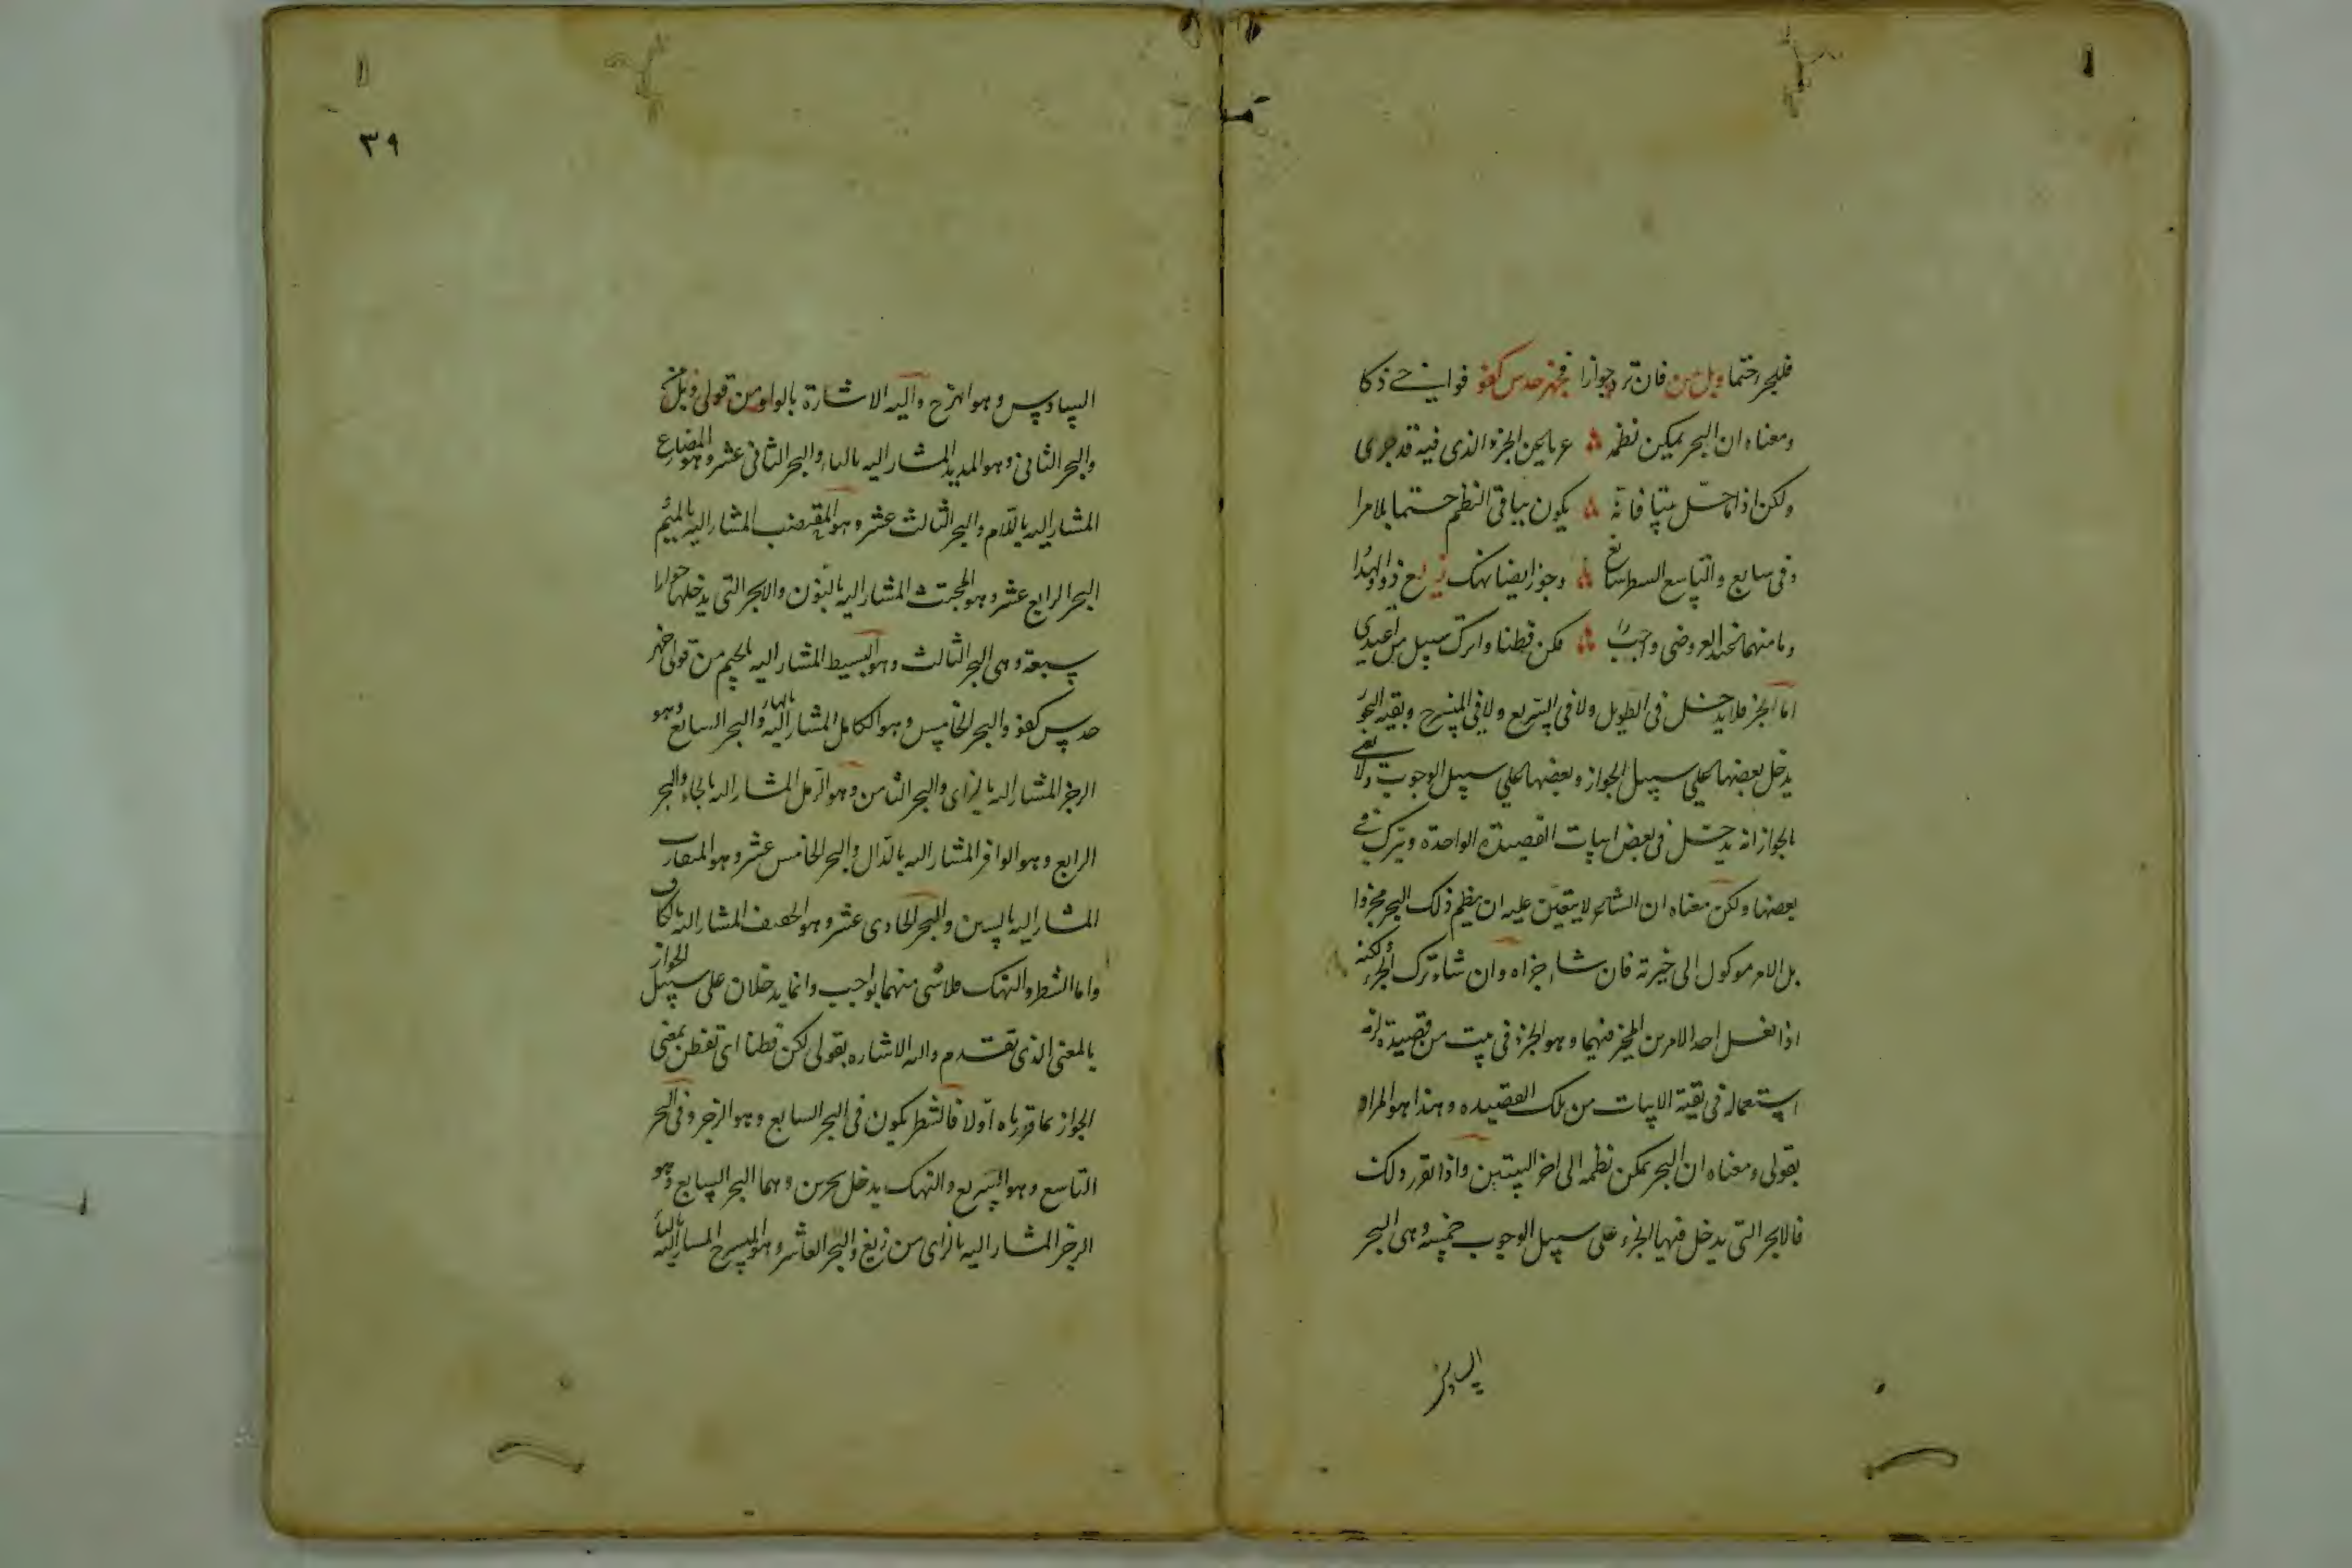 فليجر حتما وبل من فان ترد جوازا فجز حدس كفو فواف حي ذكا
ومعناه ان البحر يمكن نظمه عريا عن الجزء الذى فيه قد جرى
ولكن اذا حل بيتا فانه يكون بباقى النظم حتما بلا مرا
وفى سابع والتاسع الشطر سائغ وجوز ايضا نهك زيع ذوو الهدا
وما منهما عند العروضى واجب فكن فطنا واترك سبيل من اعتدى
اما الجزء فلا يدخل فى الطويل ولا فى السريع ولا فى المنسرح وبقيه البحور
يدخل بعضها على سبيل الجواز وبعضها على سبيل الوجوب ولا نعنى
بالجواز انه يدخل فى بعض ابيات القصيدة الواحدة ويترك فى
بعضها ولكن معناه ان الشاعر لا يتعين عليه ان ينظم ذلك البحر مجزوا
بل الامر موكول الى خيرته فان شاء جزاه وان شاء ترك الجزء لكنه
اذا فعل احد الامرين المخير فيهما وهو الجزء فى بيت من قصيدة لزمه
استعماله فى بقية الابيات من تلك القصيده وهذا هو المراد
بقولى ومعناه ان البحر يمكن نظمه الى اخر البيتين واذا تقرر ذلك
فالابحر التى يدخل فيها الجزء على سبيل الوجوب خمسة وهى البحر
السادس
٣٩
السادس وهو الهزج واليه الاشارة بالواو من قولى وبل من
والبحر الثانى وهو المديد المشار اليه بالباء والبحر الثانى عشر وهو المضارع
المشار اليه باللام والبحر الثالث عشر وهو المقتضب المشار اليه بالميم
البحر الرابع عشر وهو المجتث المشار اليه بالنون والابحر التى يدخلها جوازا
سبعة وهى البحر الثالث وهو البسيط المشار اليه بالجيم من قولى فجز
حدس كفو والبحر الخامس وهو الكامل المشار اليه بالهاء والبحر السابع وهو
الرجز المشار اليه بالزاى والبحر الثامن وهو الرمل المشار اليه بالحاء والبحر
الرابع وهو الوافر المشار اليه بالدال والبحر الخامس عشر وهو المتقارب
المشار اليه بالسين والبحر الحادى عشر وهو الخفيف المشار اليه بالكاف
واما الشطر والنهك فلا شى منهما بواجب وانما يدخلان على سبيل الجواز
بالمعنى الذى تقدم واليه الاشاره بقولى فكن فطنا اى تفطن بمعنى
الجواز بما قررناه اولا فالشطر يكون فى البحر السابع وهو الرجز وفى البحر
التاسع وهو السريع والنهك يدخل بحرين وهما البحر السابع وهو
الرجز المشار اليه بالزاى من زيع والبحر العاشر وهو المنسرح المشار اليه بالياء